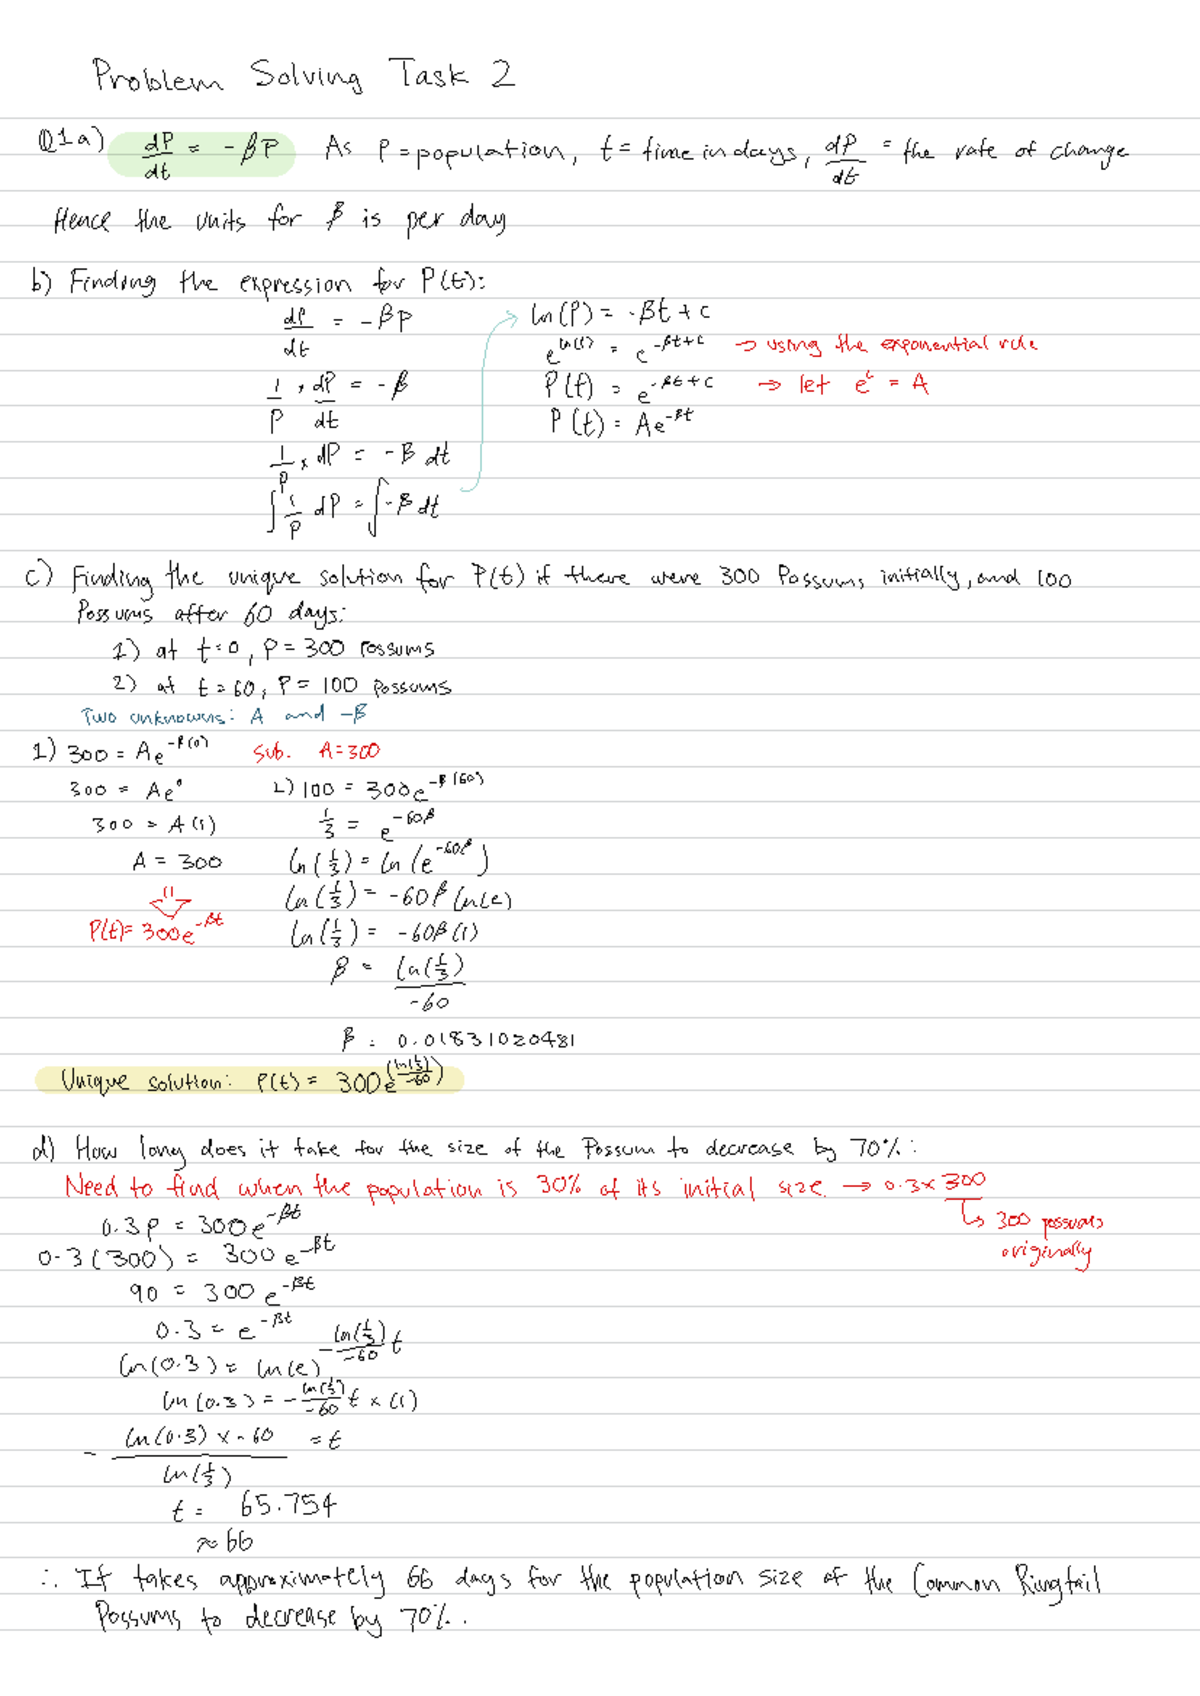 Problem Solving Task 2
Q1a) dP/dt = -βP As P = population, t = time in days, dP/dt = the rate of change
Hence the units for β is per day
b) Finding the expression for P(t):
dP/dt = -βP
1/P × dP/dt = -β
1/P × dP = -β dt
∫ 1/P dP = ∫ -β dt
ln(P) = -βt + c
e^ln(P) = e^(-βt+c) → using the exponential rule
P(t) = e^(-βt+c) → let e^c = A
P(t) = Ae^(-βt)
c) Finding the unique solution for P(t) if there were 300 Possums initially, and 100
Possums after 60 days:
1) at t=0, P = 300 Possums
2) at t=60, P = 100 Possums
Two unknowns: A and -β
1) 300 = Ae^(-β(0))
300 = Ae^0
300 = A(1)
A = 300
P(t) = 300e^(-βt)
sub. A=300
2) 100 = 300e^(-β(60))
1/3 = e^(-60β)
ln(1/3) = ln(e^(-60β))
ln(1/3) = -60β ln(e)
ln(1/3) = -60β(1)
β = ln(1/3)/-60
β = 0.01831020481
Unique solution: P(t) = 300e^(ln(1/3)/-60)
d) How long does it take for the size of the Possum to decrease by 70%:
Need to find when the population is 30% of its initial size → 0.3 × 300
↳ 300 possums
originally
0.3P = 300e^(-βt)
0.3(300) = 300e^(-βt)
90 = 300e^(-βt)
0.3 = e^(-βt)
ln(0.3) = ln(e)^(-ln(1/3)/-60 t)
ln(0.3) = -ln(1/3)/-60 t × (1)
-ln(0.3) × -60 / ln(1/3) = t
t = 65.754
≈ 66
∴ It takes approximately 66 days for the population size of the Common Ringtail
Possums to decrease by 70%.